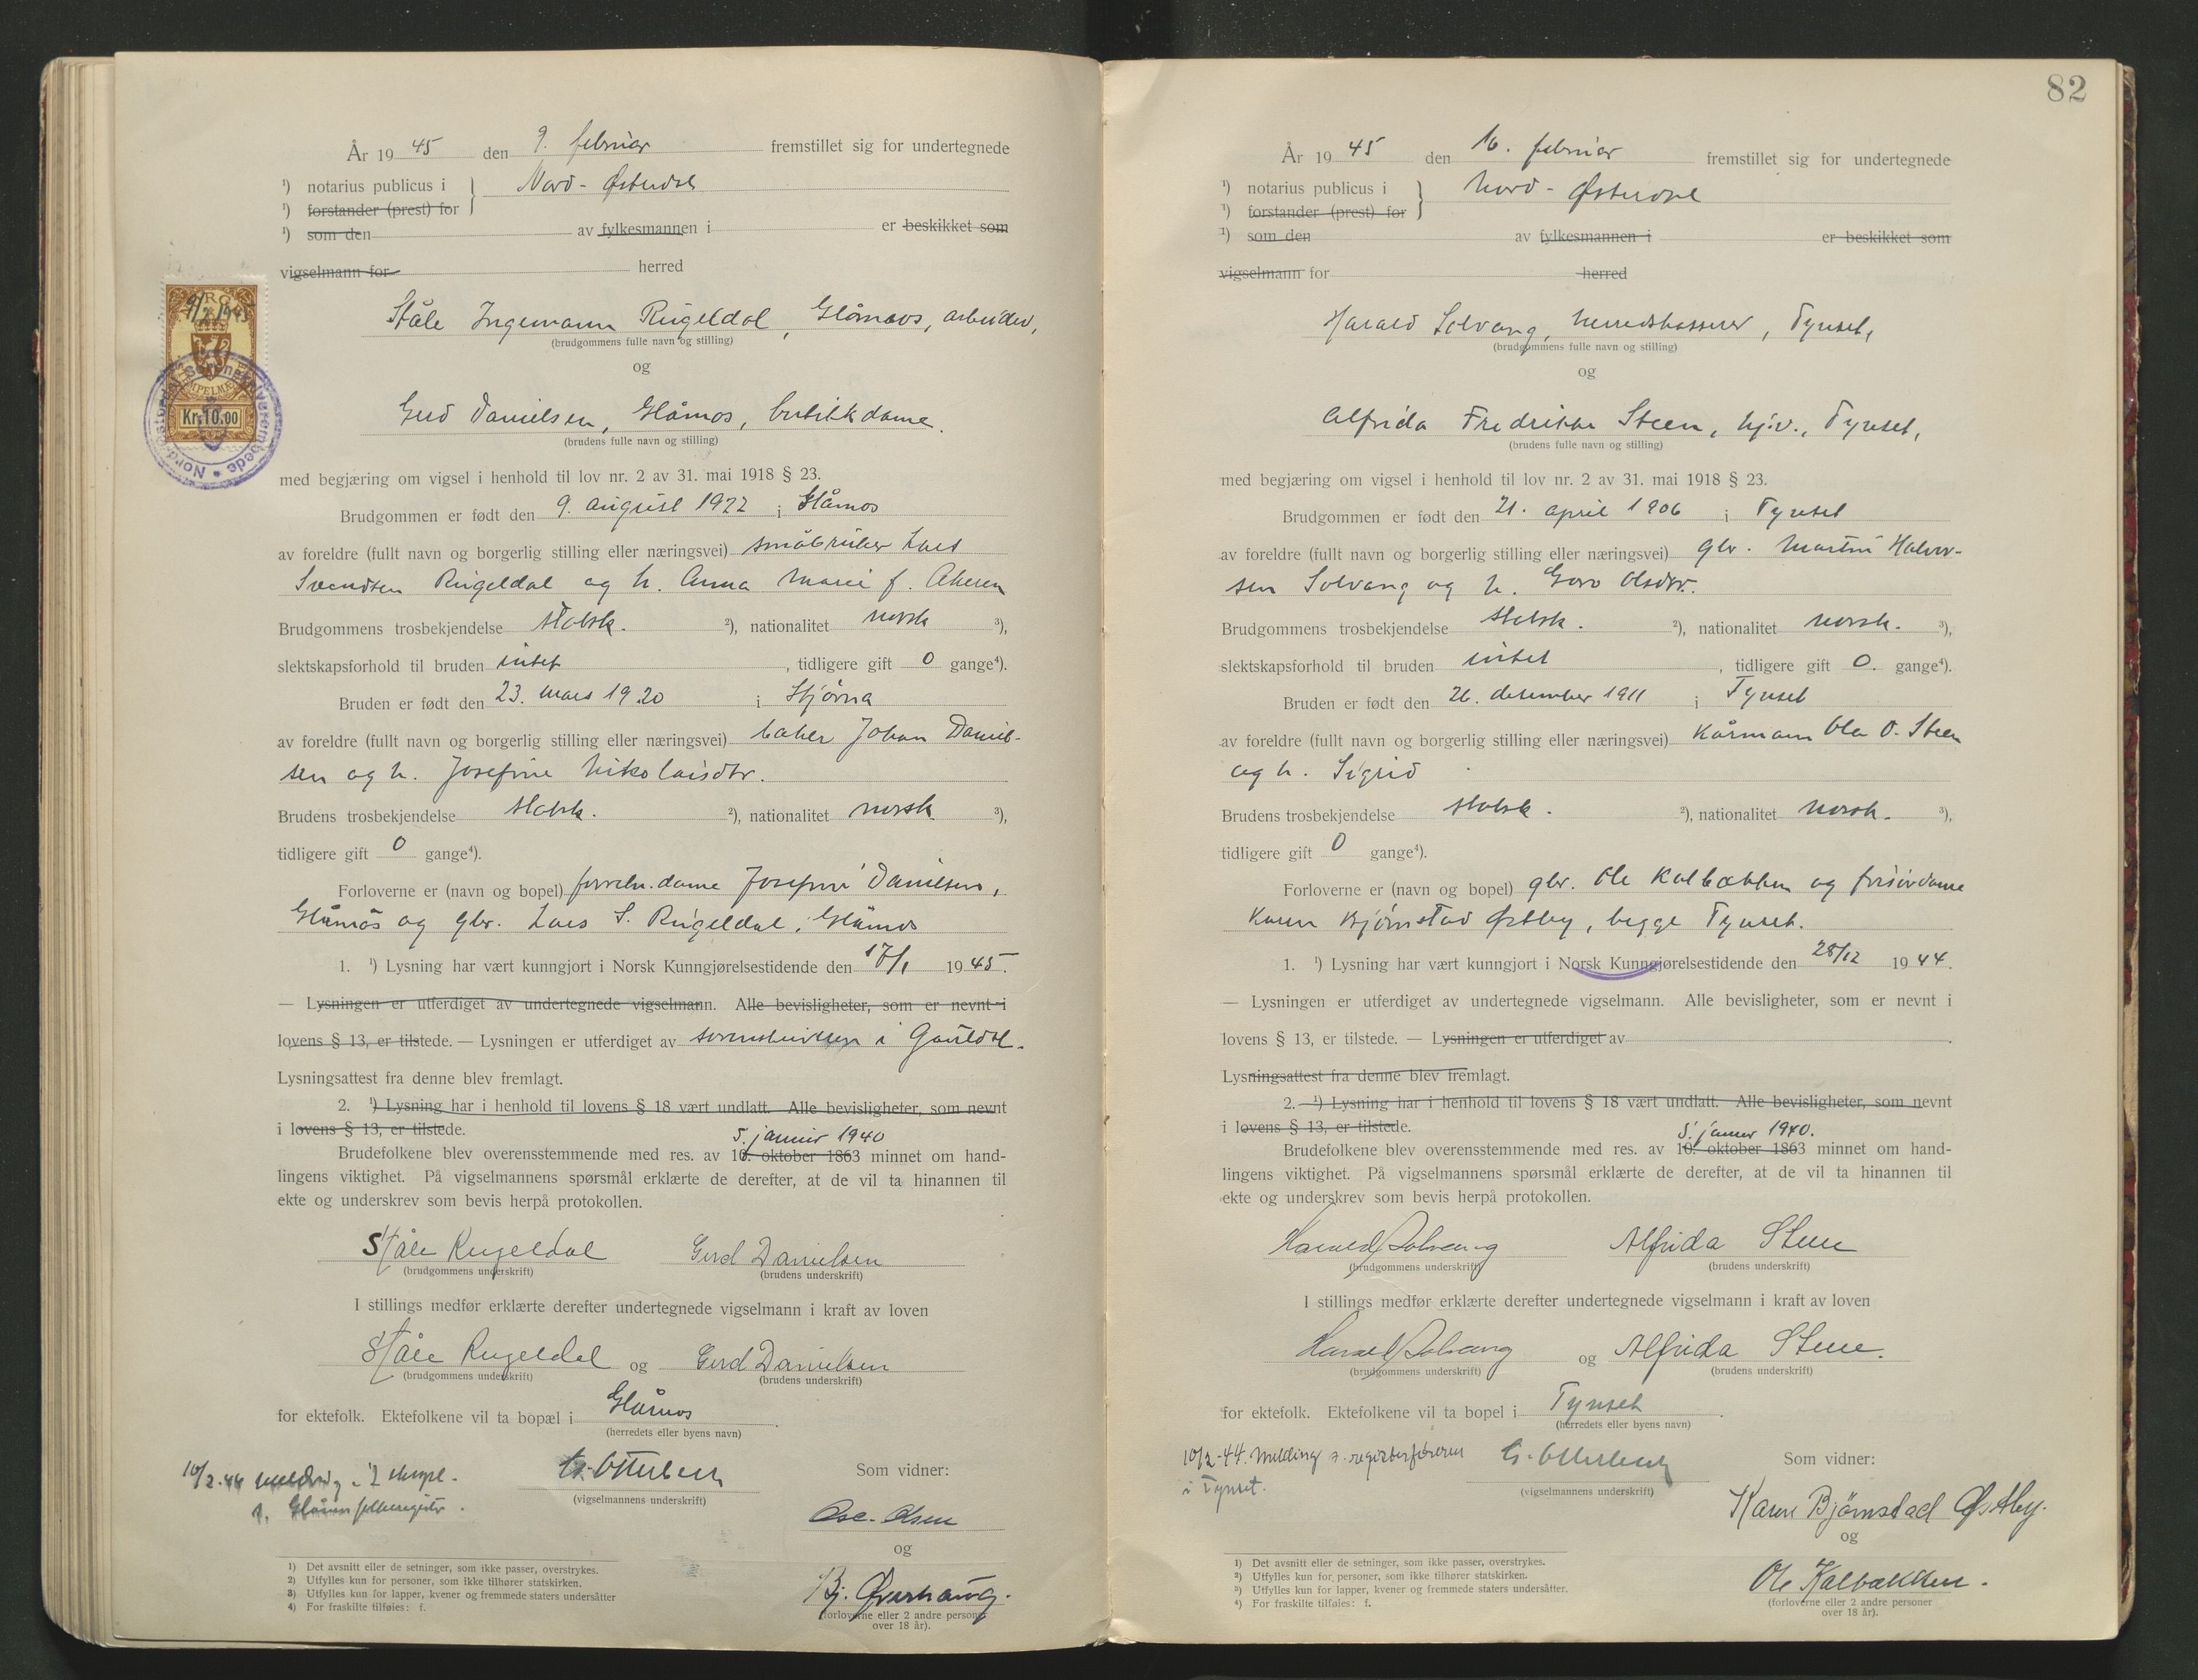 År 19 45 den 9. februar fremstillet sig for undertegnede
¹) notarius publicus i Nord-Østerdal
¹) forstander (prest) for
¹) som den av fylkesmannen i er beskikket som
vigselmann for herred
Ståle Ingemann Rugeldal, Glåmos, arbeider,
(brudgommens fulle navn og stilling)
og
Gerd Danielsen, Glåmos, butikkdame.
(brudens fulle navn og stilling)
Kr. 10.00
med begjæring om vigsel i henhold til lov nr. 2 av 31. mai 1918 § 23.
Brudgommen er født den 9. august 1922 i Glåmos
av foreldre (fullt navn og borgerlig stilling eller næringsvei) småbruker Lars
Svendsen Rugeldal og h. Anna Marie f.
Brudgommens trosbekjendelse statsk. ²), nationalitet norsk ³),
slektskapsforhold til bruden intet, tidligere gift 0 gange⁴).
Bruden er født den 23. mars 1920 i Stjørna
av foreldre (fullt navn og borgerlig stilling eller næringsvei) baker Johan Daniel-
sen og h. Josefine Nikolaisdtr.
Brudens trosbekjendelse statsk. ²), nationalitet norsk ³),
tidligere gift 0 gange⁴).
Forloverne er (navn og bopel) forretn.dame Josefine Danielsen,
Glåmos og gbr. Lars S. Rugeldal, Glåmos
1. ¹) Lysning har vært kunngjort i Norsk Kunngjørelsestidende den 17/1 1945.
— Lysningen er utferdiget av undertegnede vigselmann. Alle bevisligheter, som er nevnt i
lovens § 13, er tilstede. — Lysningen er utferdiget av sorenskriveren i Gauldal.
Lysningsattest fra denne blev fremlagt.
2. ¹) Lysning har i henhold til lovens § 18 vært undlatt. Alle bevisligheter, som nevnt
i lovens § 13, er tilstede.
5. januar 1940
Brudefolkene blev overensstemmende med res. av 10. oktober 1863 minnet om hand-
lingens viktighet. På vigselmannens spørsmål erklærte de derefter, at de vil ta hinannen til
ekte og underskrev som bevis herpå protokollen.
Ståle Rugeldal Gerd Danielsen
(brudgommens underskrift) (brudens underskrift)
I stillings medfør erklærte derefter undertegnede vigselmann i kraft av loven
Ståle Rugeldal og Gerd Danielsen
(brudgommens underskrift) (brudens underskrift)
for ektefolk. Ektefolkene vil ta bopæl i Glåmos
(herredets eller byens navn)
10/2-44 melding i 2 ekspl.
t. Glåmos folkeregister.
G. Otterbech Som vidner:
(vigselmannens underskrift)
Olsen
og
Bj. Øverhaug.
(forloverne eller 2 andre personer
over 18 år).
1) Det avsnitt eller de setninger, som ikke passer, overstrykes.
2) Utfylles kun for personer, som ikke tilhører statskirken.
3) Utfylles kun for lapper, kvener og fremmede staters undersåtter
4) For fraskilte tilføies: f.
82
År 19 45 den 16. februar fremstillet sig for undertegnede
¹) notarius publicus i Nord-Østerdal
¹) forstander (prest) for
¹) som den av fylkesmannen i er beskikket som
vigselmann for herred
Harald Solvang, herredskasserer, Tynset,
(brudgommens fulle navn og stilling)
og
Alfrida Fredrikke Steen, hj.v., Tynset,
(brudens fulle navn og stilling)
med begjæring om vigsel i henhold til lov nr. 2 av 31. mai 1918 § 23.
Brudgommen er født den 21. april 1906 i Tynset
av foreldre (fullt navn og borgerlig stilling eller næringsvei) gbr. Martin Halvor-
sen Solvang og h. Goro Olsdtr.
Brudgommens trosbekjendelse statsk. ²), nationalitet norsk. ³),
slektskapsforhold til bruden intet, tidligere gift 0. gange⁴).
Bruden er født den 26. desember 1911 i Tynset
av foreldre (fullt navn og borgerlig stilling eller næringsvei) kårmann Ola O. Steen
og h. Sigrid
Brudens trosbekjendelse statsk. ²), nationalitet norsk. ³),
tidligere gift 0 gange⁴).
Forloverne er (navn og bopel) gbr. Ole Kalbækken og frisørdame
Karen Bjørnstad Østby, begge Tynset.
1. ¹) Lysning har vært kunngjort i Norsk Kunngjørelsestidende den 28/12 1944.
— Lysningen er utferdiget av undertegnede vigselmann. Alle bevisligheter, som er nevnt i
lovens § 13, er tilstede. — Lysningen er utferdiget av
Lysningsattest fra denne blev fremlagt.
2. ¹) Lysning har i henhold til lovens § 18 vært undlatt. Alle bevisligheter, som nevnt
i lovens § 13, er tilstede.
5. januar 1940.
Brudefolkene blev overensstemmende med res. av 10. oktober 1863 minnet om hand-
lingens viktighet. På vigselmannens spørsmål erklærte de derefter, at de vil ta hinannen til
ekte og underskrev som bevis herpå protokollen.
Harald Solvang Alfrida Steen
(brudgommens underskrift) (brudens underskrift)
I stillings medfør erklærte derefter undertegnede vigselmann i kraft av loven
Harald Solvang og Alfrida Steen.
(brudgommens underskrift) (brudens underskrift)
for ektefolk. Ektefolkene vil ta bopel i Tynset
(herredets eller byens navn)
10/2-44. Melding t. registerføreren
i Tynset.
G. Otterbech Som vidner:
(vigselmannens underskrift)
Karen Bjørnstad Østby.
og
Ole Kalbækken.
(forloverne eller 2 andre personer
over 18 år).
¹) Det avsnitt eller de setninger, som ikke passer, overstrykes.
²) Utfylles kun for personer, som ikke tilhører statskirken.
³) Utfylles kun for lapper, kvener og fremmede staters undersåtter.
⁴) For fraskilte tilføies: f.